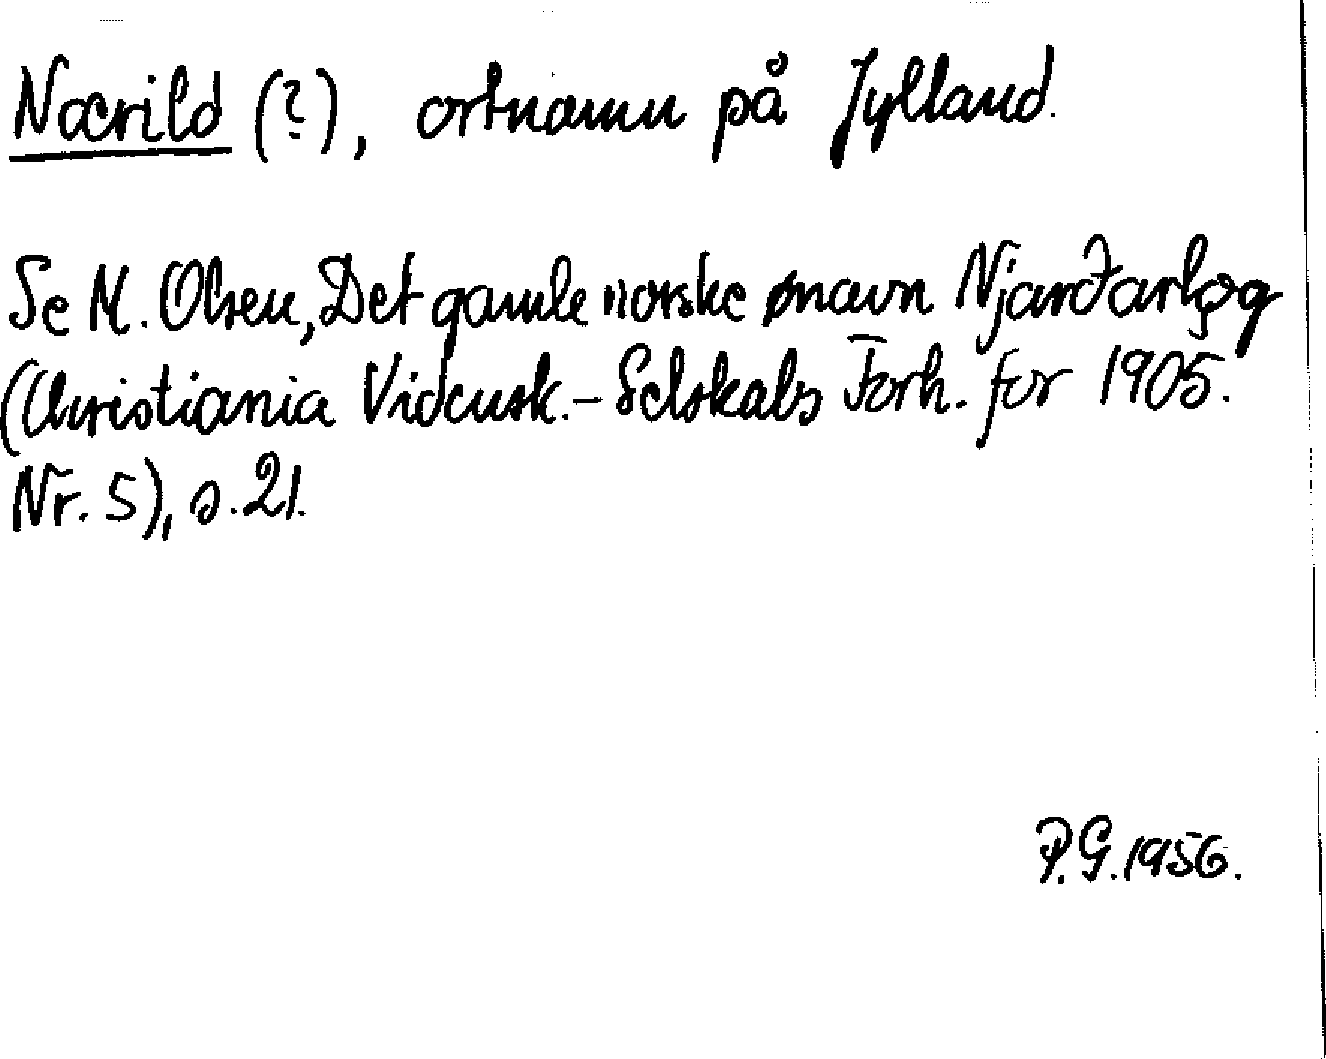 Nærild (?), ortnamn på Jylland.
Se M. Olsen, Det gamle norske ønavn Njarðarlǫg
(Christiania Vidensk.-Selskabs Forh. for 1905.
Nr. 5), s. 21.
P.G. 1956.